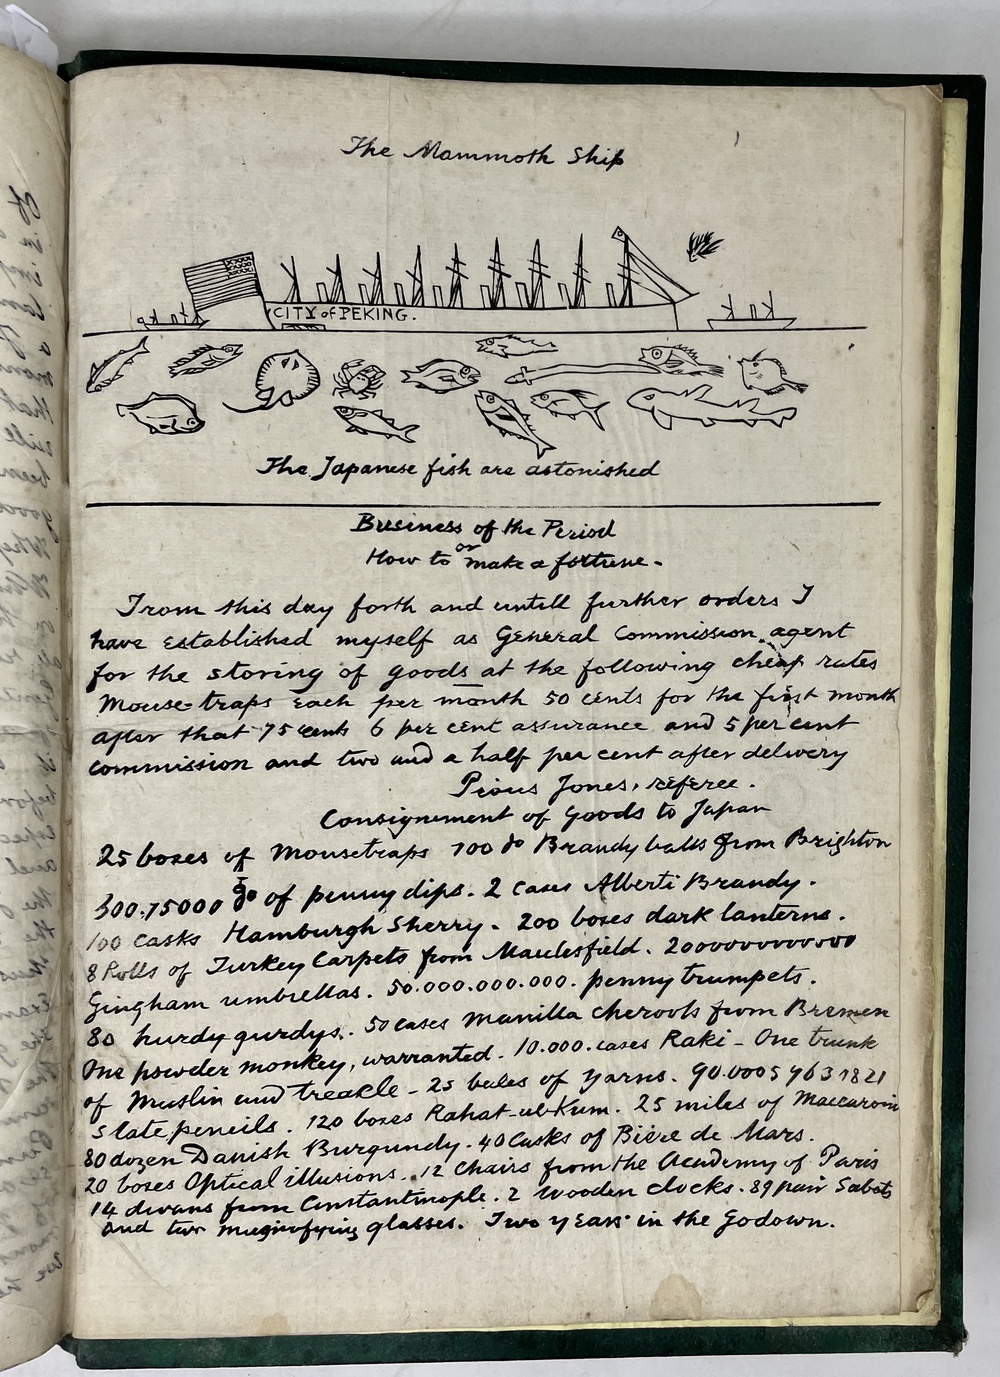 The Mammoth Ship
CITY of PEKING.
The Japanese fish are astonished
Business of the Period
or
How to make a fortune.
From this day forth and untill further orders I
have established myself as General Commission agent
for the storing of goods at the following cheap rates
Mouse-traps Each per month 50 cents for the first month
after that 75 cents 6 per cent assurance and 5 per cent
commission and two and a half per cent after delivery
Pious Jones, referee.
Consignement of Goods to Japan
25 boxes of Mousetraps 100 do Brandy balls from Brighton
300.75000 do of penny dips. 2 cases Alberti Brandy.
100 casks Hamburgh Sherry. 200 boxes dark lanterns.
8 Rolls of Turkey Carpets from Maclesfield. 2000000000000
Gingham umbrellas. 50.000.000.000. penny trumpets.
80 hurdy gurdys. 50 cases Manilla cheroots from Bremen
One powder monkey, warranted. 10.000. cases Raki - One trunk
of Muslin and treakle - 25 bales of yarns. 90.0005 963 1821
Slate pencils. 120 boxes Rahat-ul-Kum. 25 miles of Maccaroni
80 dozen Danish Burgundy. 40 Casks of Bière de Mars.
20 boxes Optical illusions. 12 Chairs from the Academy of Paris
14 divans from Constantinople. 2 wooden clocks. 89 pair Sabots
and two magnifying glasses. Two years in the Godown.